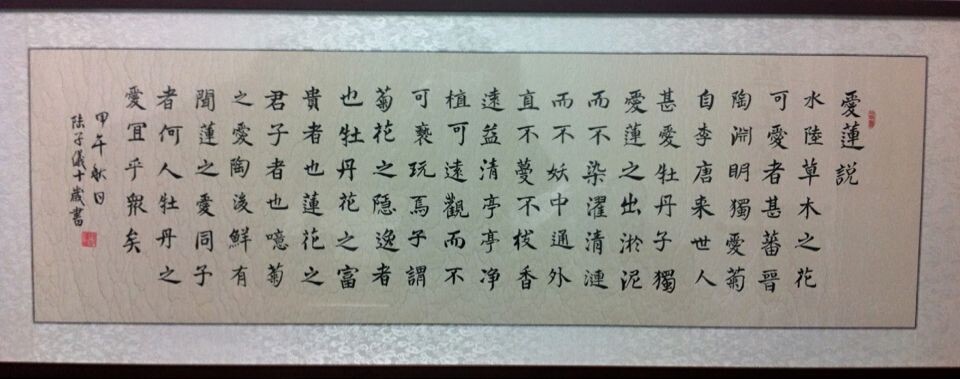 愛蓮説
水陸草木之花
可愛者甚蕃晉
陶淵明獨愛菊
自李唐来世人
甚愛牡丹子獨
愛蓮之出淤泥
而不染濯清漣
而不妖中通外
直不蔓不枝香
遠益清亭亭净
植可遠觀而不
可褻玩焉子謂
菊花之隱逸者
也牡丹花之富
貴者也蓮花之
君子者也噫菊
之愛陶後鮮有
聞蓮之愛同子
者何人牡丹之
愛宜乎衆矣
甲午秋日
陆子儀十歲書